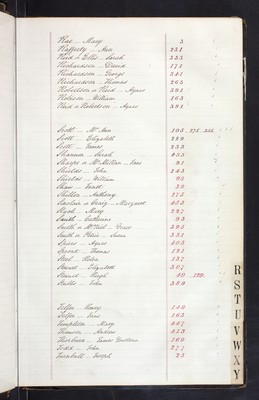 Rae - Mary 3
Rafferty - Ann 231
Reid or Ellis - Sarah 333
Richardson - David 171
Richardson - George 341
Richardson - Thomas 265
Robertson or Reid - Agnes 391
Robson - William 163
Reid or Robertson - Agnes 391
Scott - Mc Ann 105
Scott - Elizabeth 289
Scott - James 233
Shannon - Sarah 433
Sharpe or McMillan - Jane 21
Shields - John 243
Shields - William 99
Shaw - Janet 39
Skelton - Anthony 175
Sinclair or Craig - Margaret 453
Slysh - Mary 227
Smith - Catherine 93
Smith or McNeil - Grace 395
Smith or Peter - Susan 331
Spiers - Agnes 403
Sproat - Thomas 123
Steel - Robin 137
Stewart - Elizabeth 307
Stewart - Hugh 49 . 129
Stubbs - John 389
Telfer - Henry 149
Telfer - Jane 163
Templeton - Mary 447
Thomson - Andrew 413
Thorburn - James 169
Todd - John 277
Turnbull - Joseph 23
R
S
T
U
V
W
X
Y